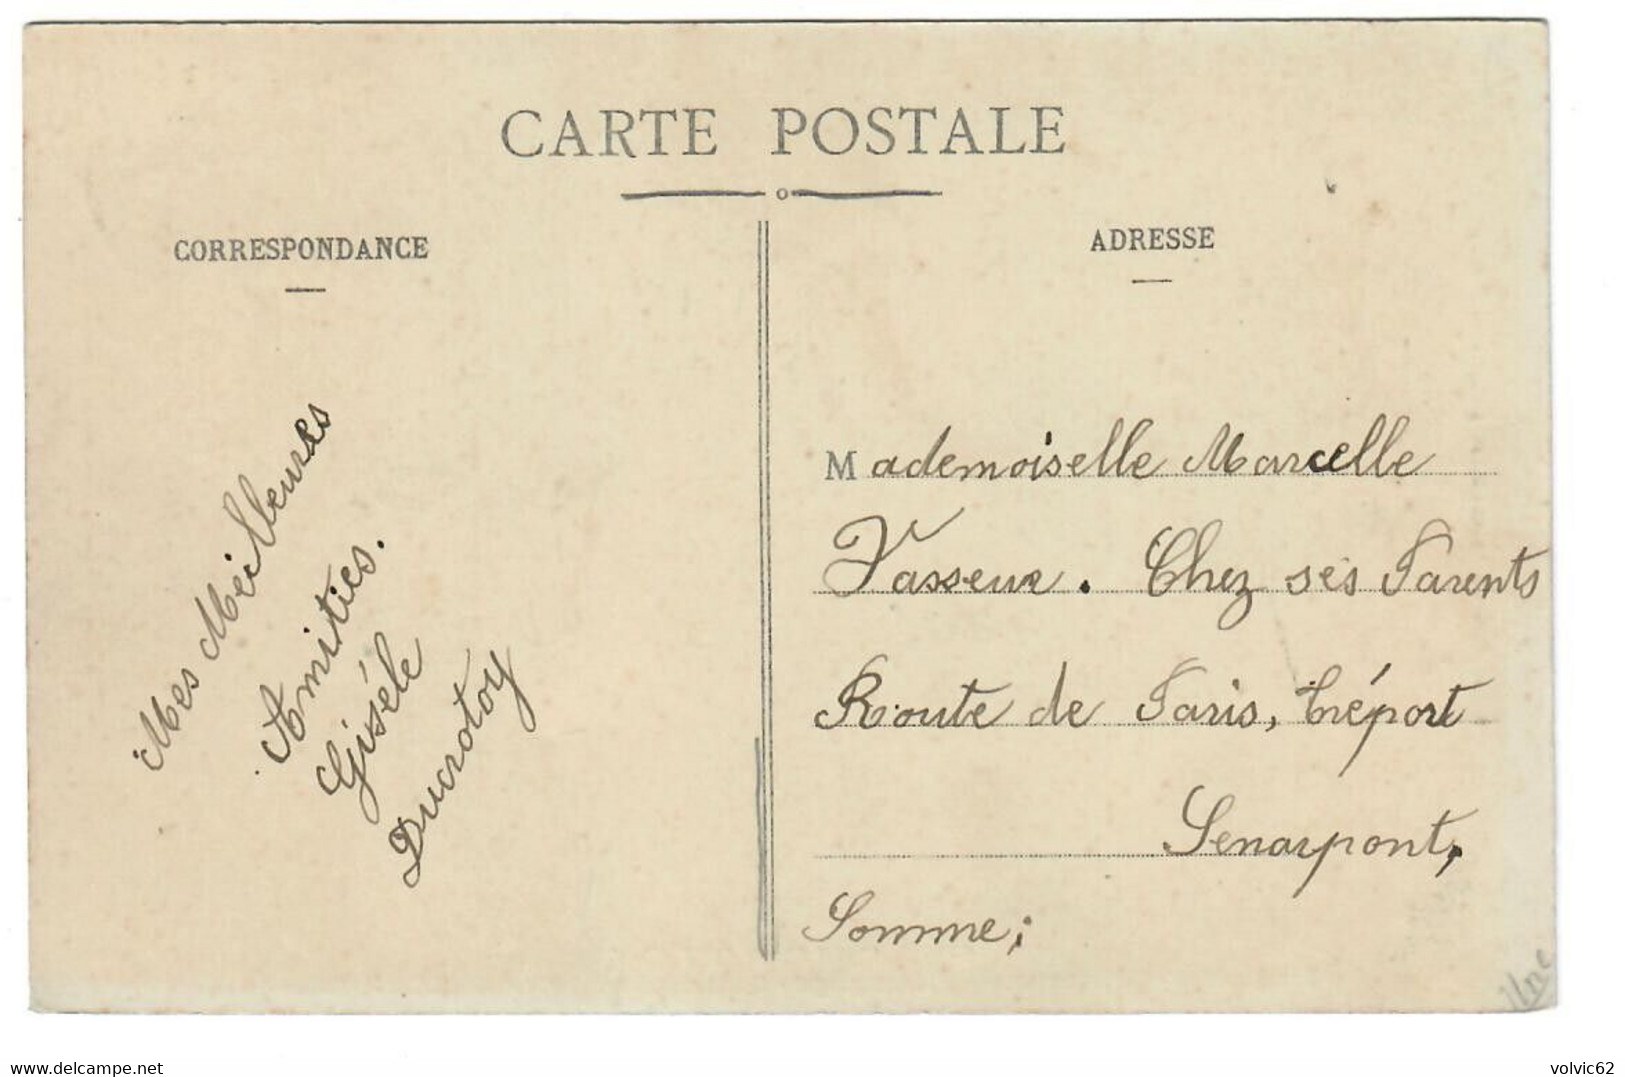 CARTE POSTALE
CORRESPONDANCE
ADRESSE
Mes Meilleures
Amities.
Gisèle
Ducrotoy
Mademoiselle Marcelle
Vasseur. Chez ses Parents
Route de Paris, Tréport
Senarpont,
Somme;
delcampe.net
volvic62